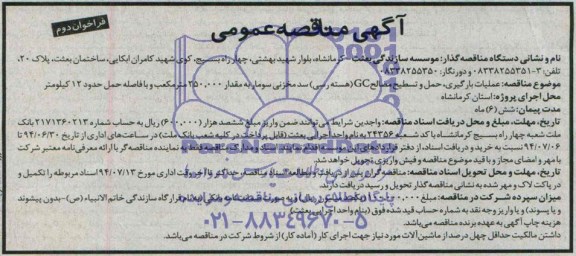 فراخوان دوم
آگهی مناقصه عمومی
نام و نشانی دستگاه مناقصه گذار: موسسه سازندگی بعثت - کرمانشاه، بلوار شهید بهشتی، چهارراه بسیج، کوی شهید کامران ابکایی، ساختمان بعثت، پلاک ۲۰،
تلفن: ۳-۰۸۳۳۸۲۵۵۳۵۱ و دورنگار: ۰۸۳۳۸۲۵۵۳۵۰
موضوع مناقصه: عملیات بارگیری، حمل و تسطیح مصالح GC (هسته رسی) سد مخزنی سومار به مقدار ۲۵۰,۰۰۰ مترمکعب و با فاصله حمل حدود ۱۲ کیلومتر
محل اجرای پروژه: استان کرمانشاه
مدت پیمان: شش (۶) ماه
تاریخ، مهلت، مبلغ و محل دریافت اسناد مناقصه: واجدین شرایط می توانند ضمن واریز مبلغ ششصد هزار (۶۰۰,۰۰۰) ریال به حساب شماره ۲۱۷۱۳۶۰۲۱۳ بانک
ملت شعبه چهار راه بسیج کرمانشاه با کد شعبه ۲۴۳۵۶ به نام واحد اجرایی بعثت (قابل پرداخت در کلیه شعب بانک ملت) در ساعت های اداری از تاریخ ۹۴/۰۶/۳۰ تا
۹۴/۰۷/۰۶ نسبت به خرید و دریافت اسناد، از دفتر قراردادهای این موسسه اقدام نمایند. نماینده مناقصه گر با ارائه معرفی نامه معتبر شرکت
با مهر و امضای مجاز و با قید موضوع مناقصه و فیش واریزی تحویل خواهد شد.
تاریخ، مهلت و محل تحویل اسناد مناقصه: مناقصه گران پس از دریافت و مطالعه اسناد مناقصه، حداکثر تا آخر وقت اداری مورخ ۹۴/۰۷/۱۳ اسناد مربوطه را تکمیل و
در پاکت لاک و مهر شده به نشانی مناقصه گذار تحویل و رسید دریافت دارند.
میزان سپرده شرکت در مناقصه: مبلغ قرارگاه سازندگی خاتم الانبیاء (ص) - بدون پیشوند
و یا پسوند) و یا واریز وجه نقد به شماره حساب قید شده فوق (بنام واحد اجرایی بعثت)
هزینه چاپ آگهی به عهده برنده مناقصه می باشد.
داشتن مالکیت حداقل چهل درصد از ماشین آلات مورد نیاز جهت اجرای کار (آماده کار) از شروط شرکت در مناقصه می باشد.
ParsNamadData
پایگاه اطلاع رسانی مناقصه
۰۲۱-۸۸۳۴۹۶۷۰-۵